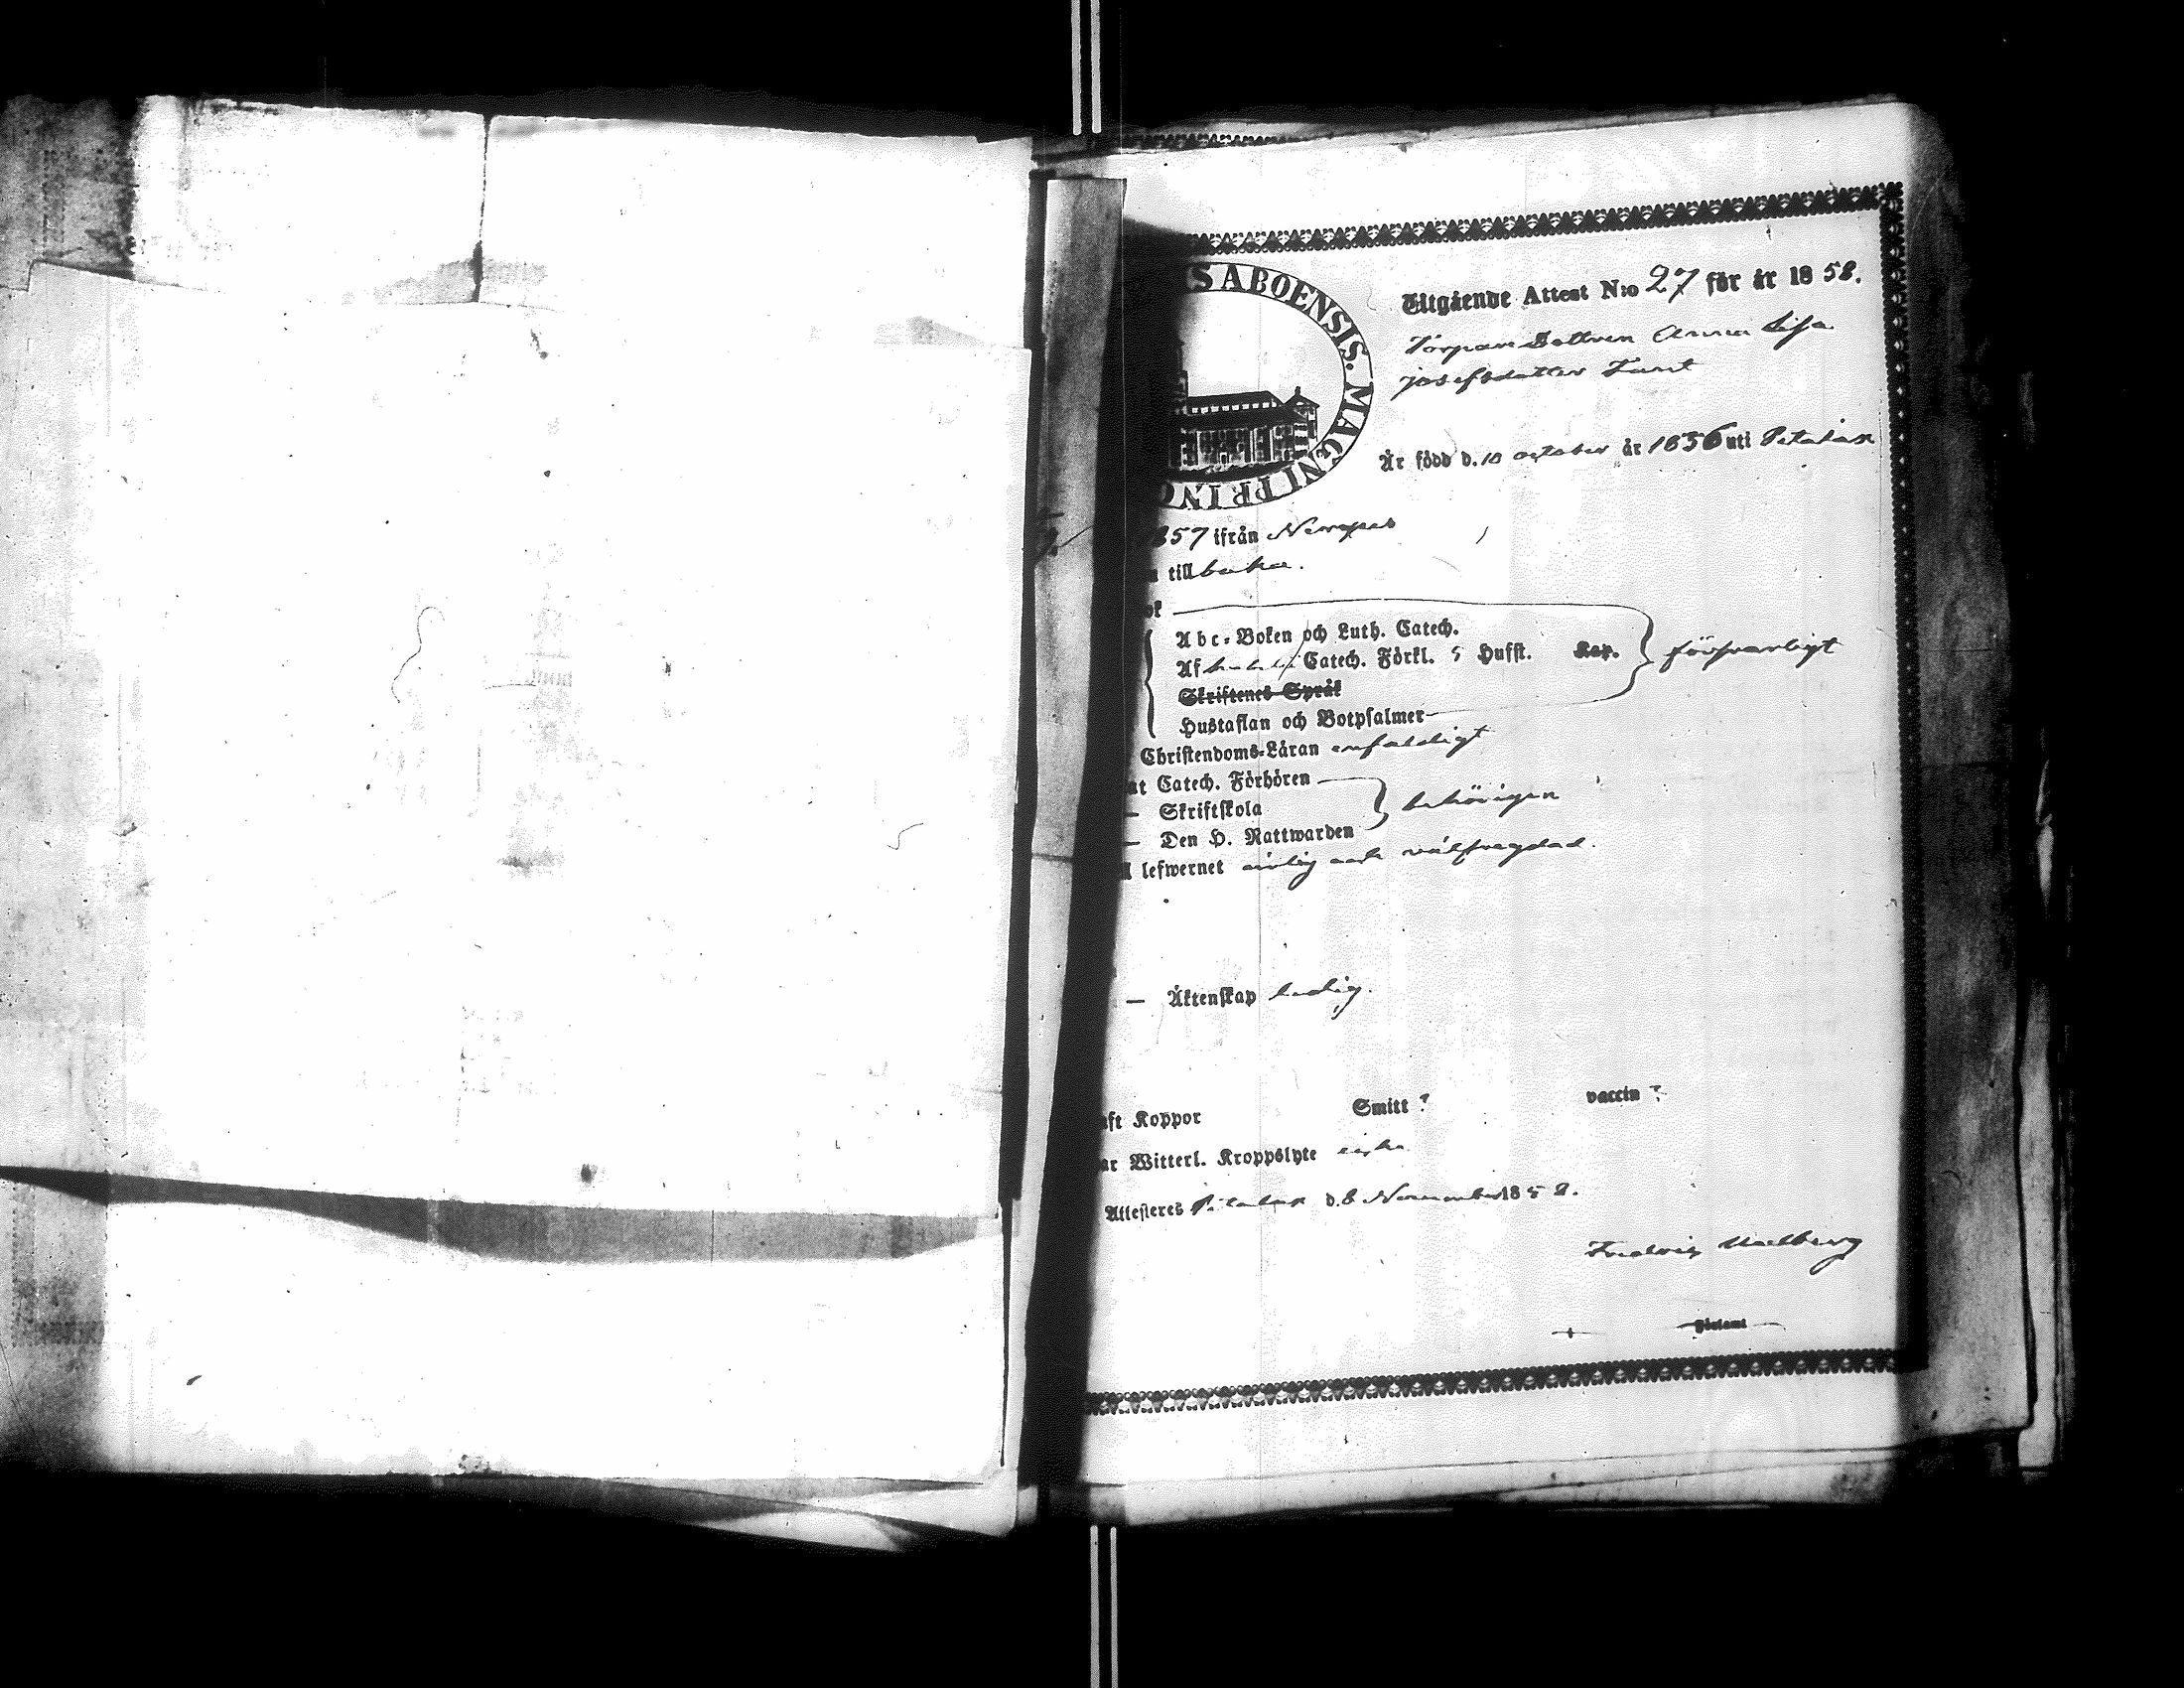 S ABOENSIS. MAGNI PRINC
Utgående Attest N:o 27 för år 1858.
Torpare Dottren Anna Lisa
Josefsdotter
Är född d. 10 october år 1836 uti Petalax
857 ifrån Nerpes
till baka.
ok
Abc-Boken och Luth. Catech.
Af Catech. Förkl. 5 Hufst. Kap. försvarligt
Skriftenes Språk
Hustaflan och Botpsalmer
Christendoms-Läran enfaldigt
Catech. Förhören
— Skriftskola behörigen
— Den H. Nattwarden
lefwernet ärlig och välfrägdad.
— Äktenskap ledig.
ft Koppor Smitt ? vaccin ?
ar Witterl. Kroppslyte
Attesteres Petalax d. 8 November 1858.
Fredrig